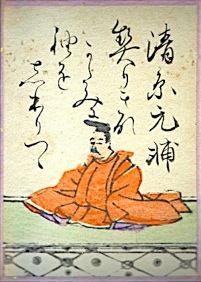 清原元輔
契りきな
かたみに
袖を
しほりつゝ